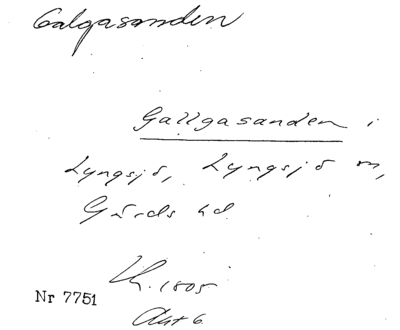 Galgasanden
Gallgasanden i
Lyngsjö, Lyngsjö sn,
Gärds hd
Lh. 1805
Akt 6.
Nr 7751